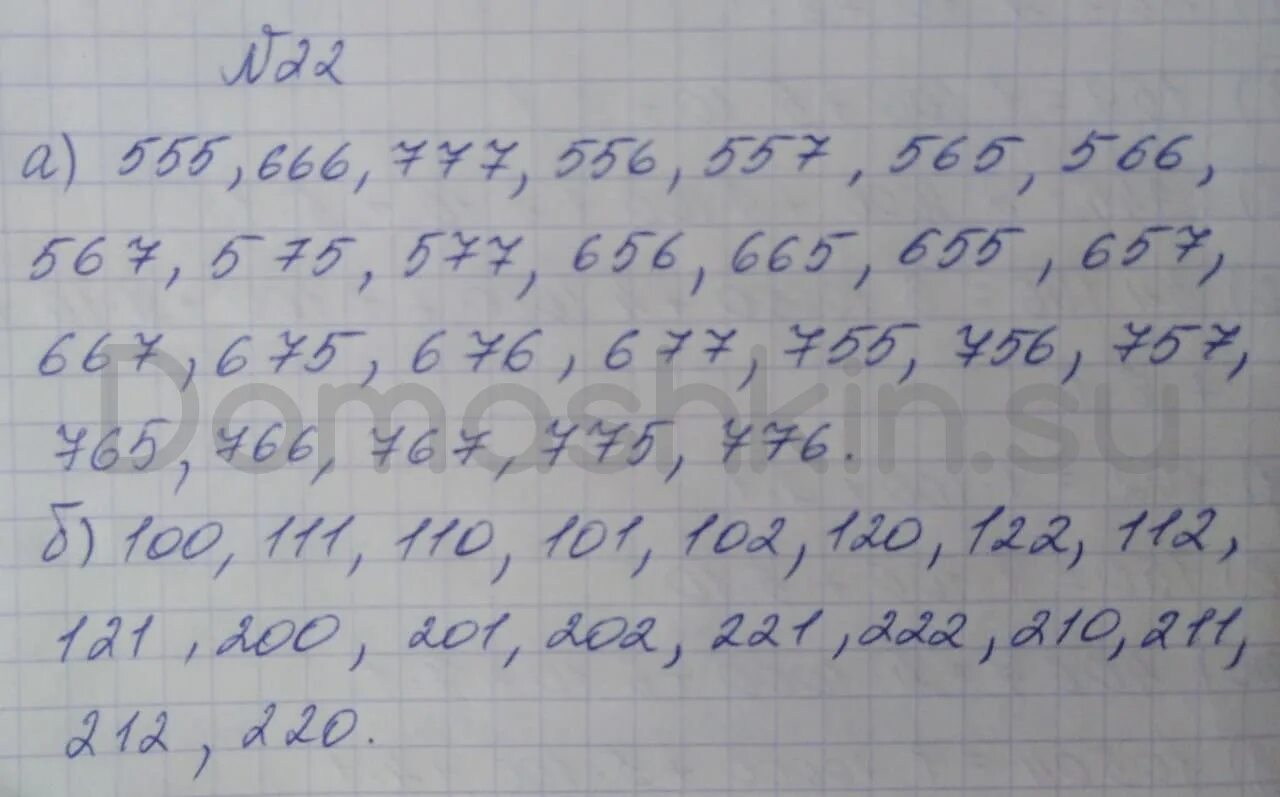 №22
а) 555, 666, 777, 556, 557, 565, 566,
567, 575, 577, 656, 665, 655, 657,
667, 675, 676, 677, 755, 756, 757,
765, 766, 767, 775, 776.
Domashkin.su
б) 100, 111, 110, 101, 102, 120, 122, 112,
121, 200, 201, 202, 221, 222, 210, 211,
212, 220.